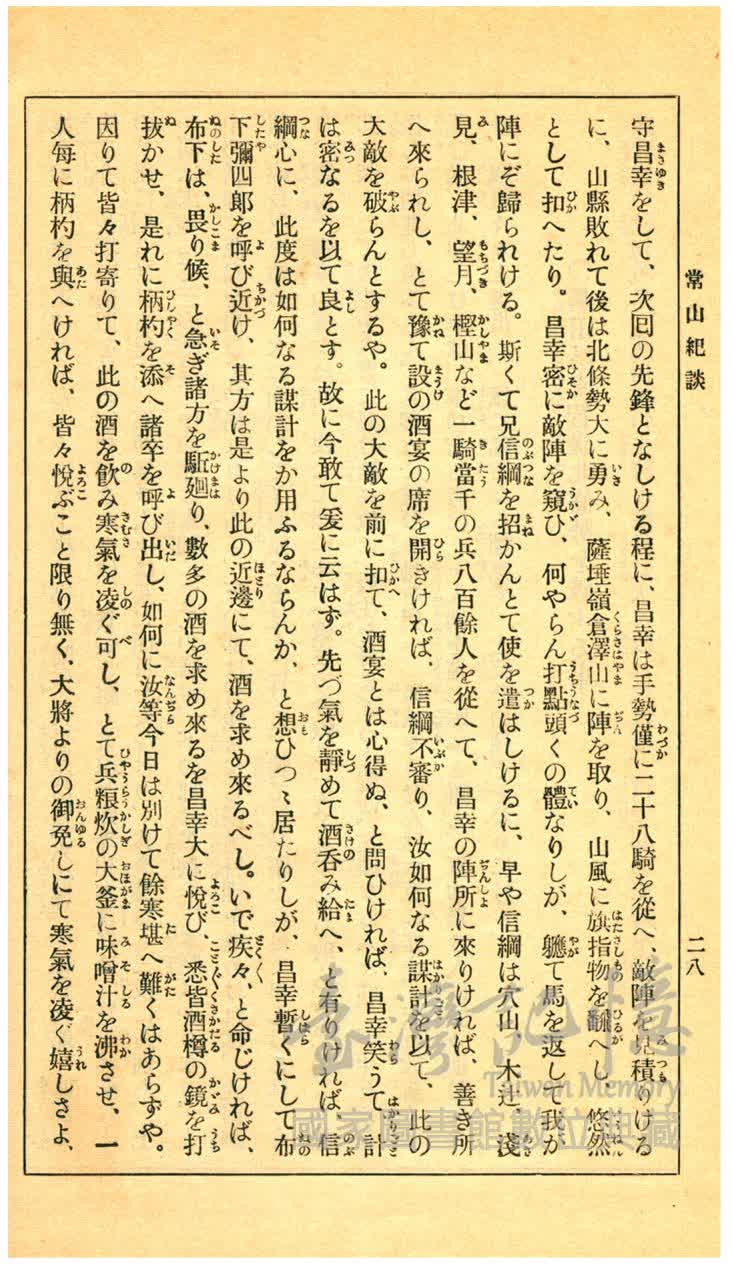 常山紀談
二八
守昌幸をして、次囘の先鋒となしける程に、昌幸は手勢僅に二十八騎を從へ、敵陣を見積りける
に、山縣敗れて後は北條勢大に勇み、薩埵嶺倉澤山に陣を取り、山風に旗指物を飜へし、悠然
として扣へたり。昌幸密に敵陣を窺ひ、何やらん打點頭くの體なりしが、軈て馬を返して我が
陣にぞ歸られける。斯くて兄信綱を招かんとて使を遣はしけるに、早や信綱は穴山、木辻、淺
見、根津、望月、樫山など一騎當千の兵八百餘人を從へて、昌幸の陣所に來りければ、善き所
へ來られし、とて豫て設の酒宴の席を開きければ、信綱不審り、汝如何なる謀計を以て、此の
大敵を破らんとするや。此の大敵を前に扣て、酒宴とは心得ぬ、と問ひければ、昌幸笑うて、計
は密なるを以て良とす。故に今敢て爰に云はず。先づ氣を靜めて酒呑み給へ、と有りければ、信
綱心に、此度は如何なる謀計をか用ふるならんか、と想ひつゝ居たりしが、昌幸暫くにして布
下彌四郎を呼び近け、其方は是より此の近邊にて、酒を求め來るべし。いで疾々、と命じければ、
布下は、畏り候、と急ぎ諸方を駈廻り、數多の酒を求め來るを昌幸大に悅び、悉皆酒樽の鏡を打
拔かせ、是れに柄杓を添へ諸卒を呼び出し、如何に汝等今日は別けて餘寒堪へ難くはあらずや。
因りて皆々打寄りて、此の酒を飮み寒氣を凌ぐ可し、とて兵粮炊の大釜に味噌汁を沸させ、一
人每に柄杓を與へければ、皆々悅ぶこと限り無く、大將よりの御免しにて寒氣を凌ぐ嬉しさよ、
臺灣記憶
Taiwan Memory
國家圖書館數位典藏